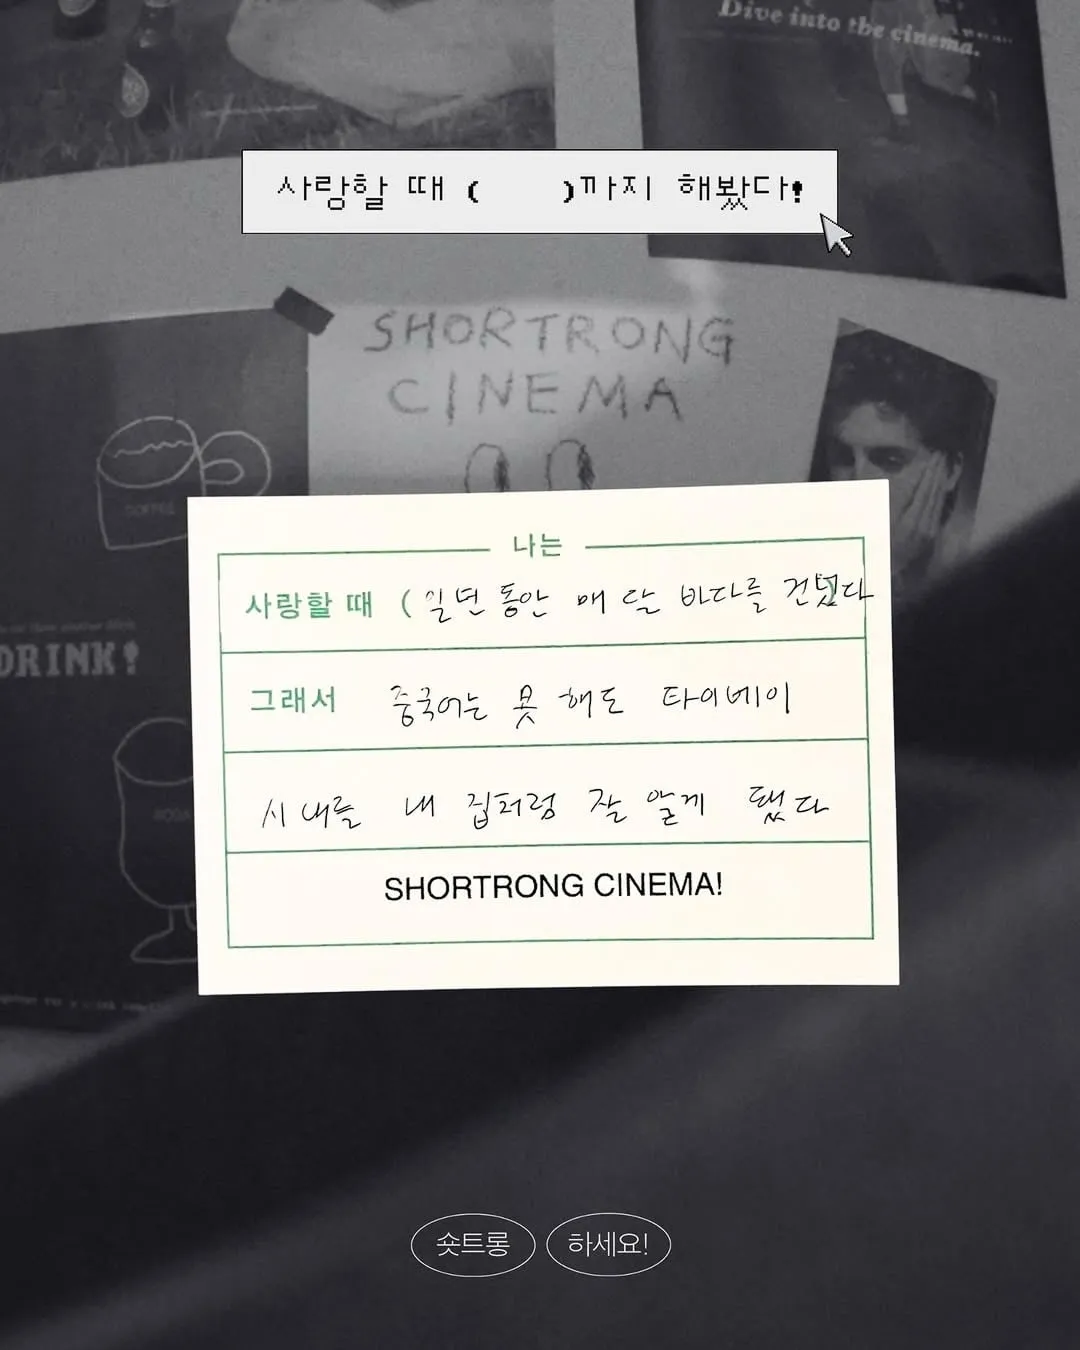 Dive into the cinema.
사랑할 때 (      )까지 해봤다!
SHORTRONG
CINEMA
COFFEE
나는
사랑할 때 ( 일년 동안 매 달 바다를 건넜다
DRINK!
그래서 중국어는 못 해도 타이베이
시내를 내 집처럼 잘 알게 됐다
SODA
SHORTRONG CINEMA!
숏트롱 하세요!